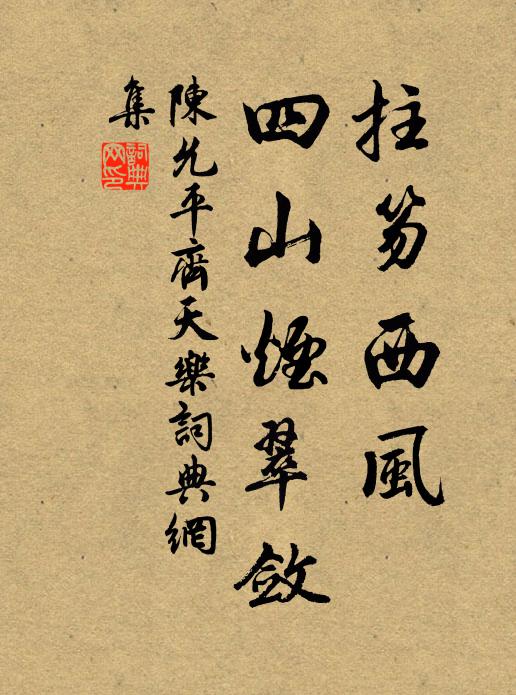 拄笏西風
四山煙翠斂
陳允平齊天樂詞典網
集
詞典
网印